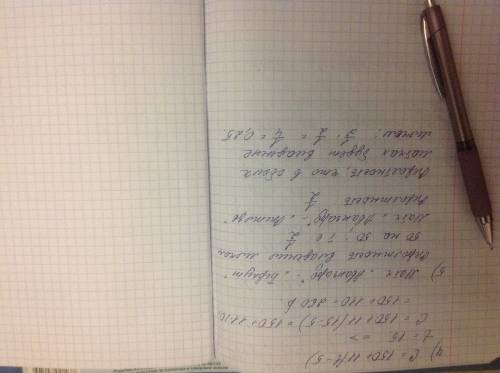 4) C = 150 + 11(t-5)
t = 15 =>
C = 150 + 11(15-5) = 150 + 11·10
= 150 + 110 = 260 р
5) Матч "Авангард" -
Вероятность владения мячом
50 на 50, т.е 1/2
Матч "Авангард" -
Вероятность 1/2
Вероятность, что в обоих
матчах будет владение
мячом: 1/2 · 1/2 = 1/4 = 0,25.